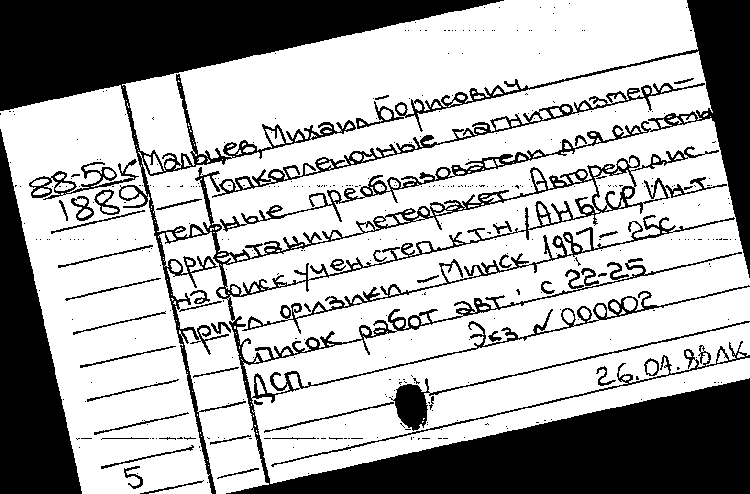 88-50к
1889
Мальцев, Михаил Борисович.
Тонкопленочные магнитоизмери-
тельные преобразователи для системы
ориентации метеоракет: Автореф. дис.
на соиск. учен. степ. к.т.н. / АН БССР, Ин-т
прикл. физики. — Минск, 1987. — 25с.
Список работ авт.: с. 22-25.
Экз. N 000002
ДСП.
26.01.88 ЛК
5